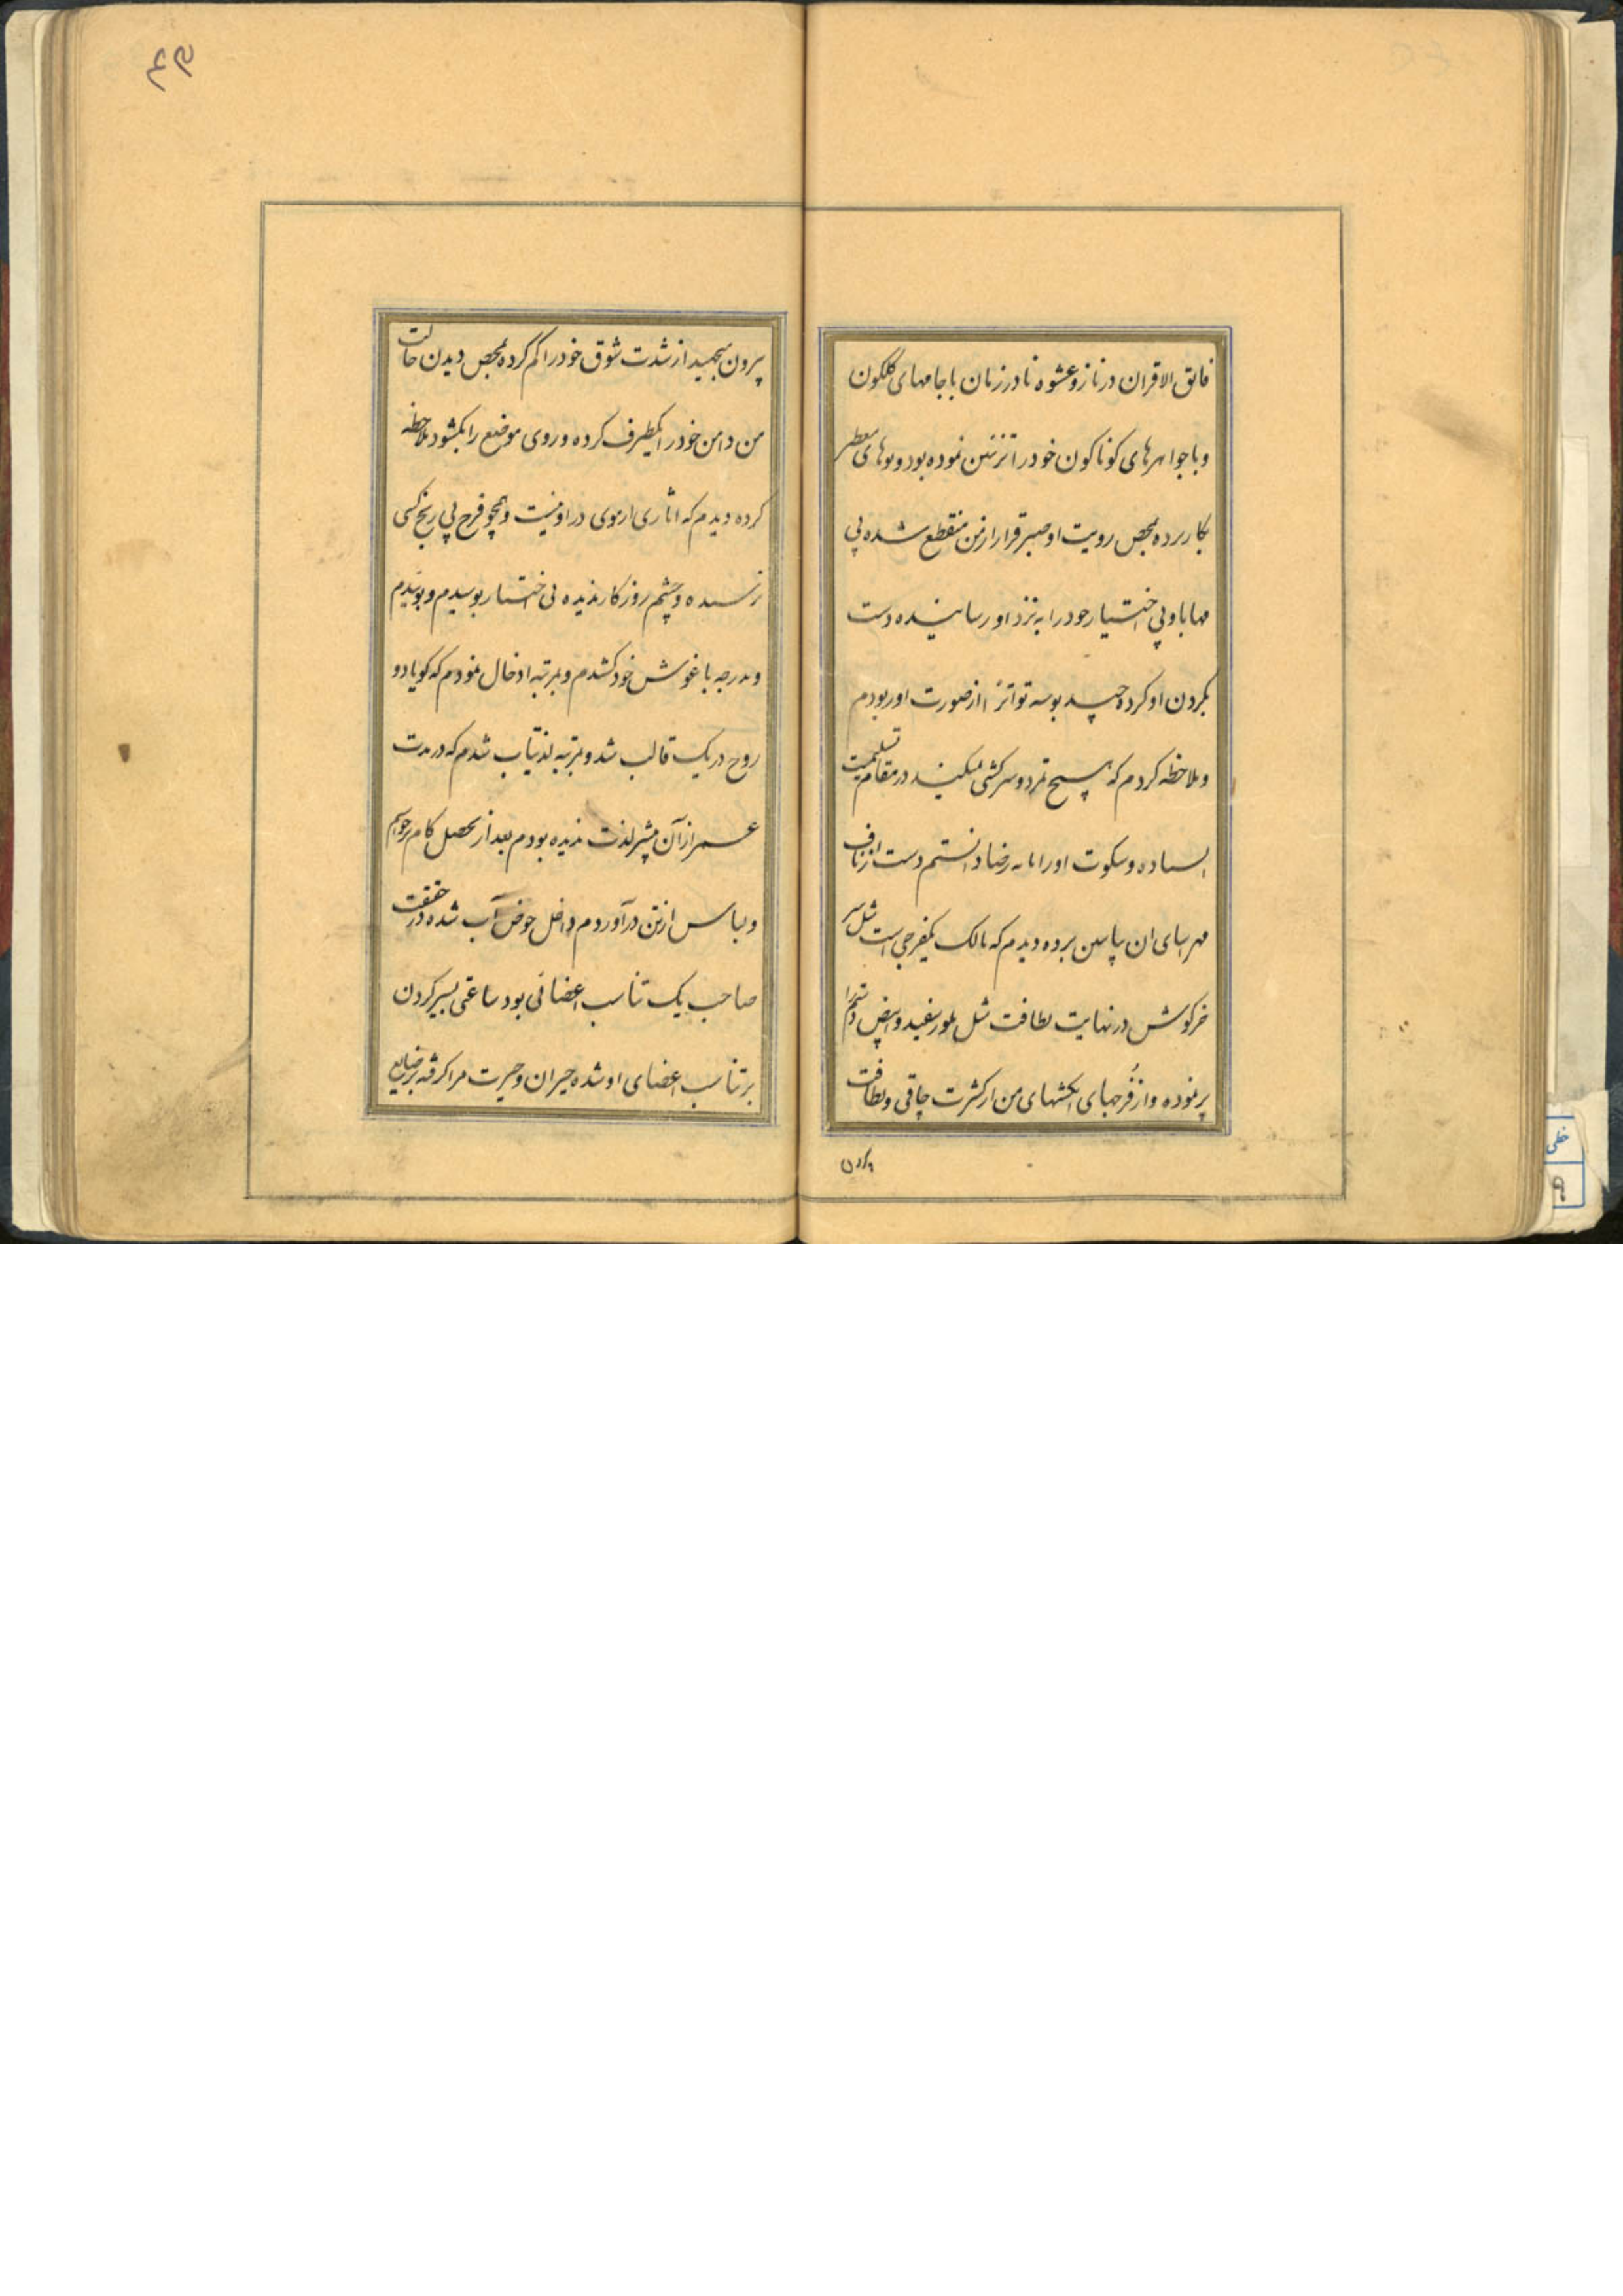 فایق الاقران در ناز و عشوه نادر زنان با جامهای کلکون
و با جواهرهای کوناکون خود را تزئین نموده بود و بوهای معطر
بکار برده بمحض رویت او صبر قرار از من منقطع شده بی
مهابا و بی اختیار خود را به نزد او رسانیده دست
بکردن او کرده چند بوسه تواتراً از صورت او ربودم
و ملاحظه کردم که هیچ تمرد و سرکشی نمیکند در مقام تسلیمیت
ایستاده و سکوت او را رضا دانستم دست از زناف
ان پایین برده دیدم که مالک یکفرجی است مثل سر
خرکوش در نهایت لطافت مثل بلور سفید و ابیض دستم را
پر نموده و از فرجهای انکشتهای من از کثرت چاقی و لطافت
بیرون
۴۹
بیرون میجهید از شدت شوق خود را کم کرده بمحض دیدن حالت
من دامن خود را یکطرف کرده و روی موضع را بکشود ملاحظه
کرده دیدم که اثاری از موی در او نیست و همچو فرج بی رنج کسی
نرسیده و چشم روزکار ندیده بی اختیار بوسیدم و بوئیدم
و بدرجه باغوش خود کشیدم و بمرتبه ادخال نمودم که کویا دو
روح در یک قالب شد و بمرتبه لذتیاب شدم که در مدت
عمر از آن بیشتر لذت ندیده بودم بعد از تحصیل کام برخواستم
و لباس از تن در آوردم داخل حوض آب شده در حقیقت
صاحب یک تناسب اعضائی بود ساعتی بسیر کردن
بر تناسب اعضای او شده حیران و حیرت مرا کرفته بر صنایع
خطی
۹